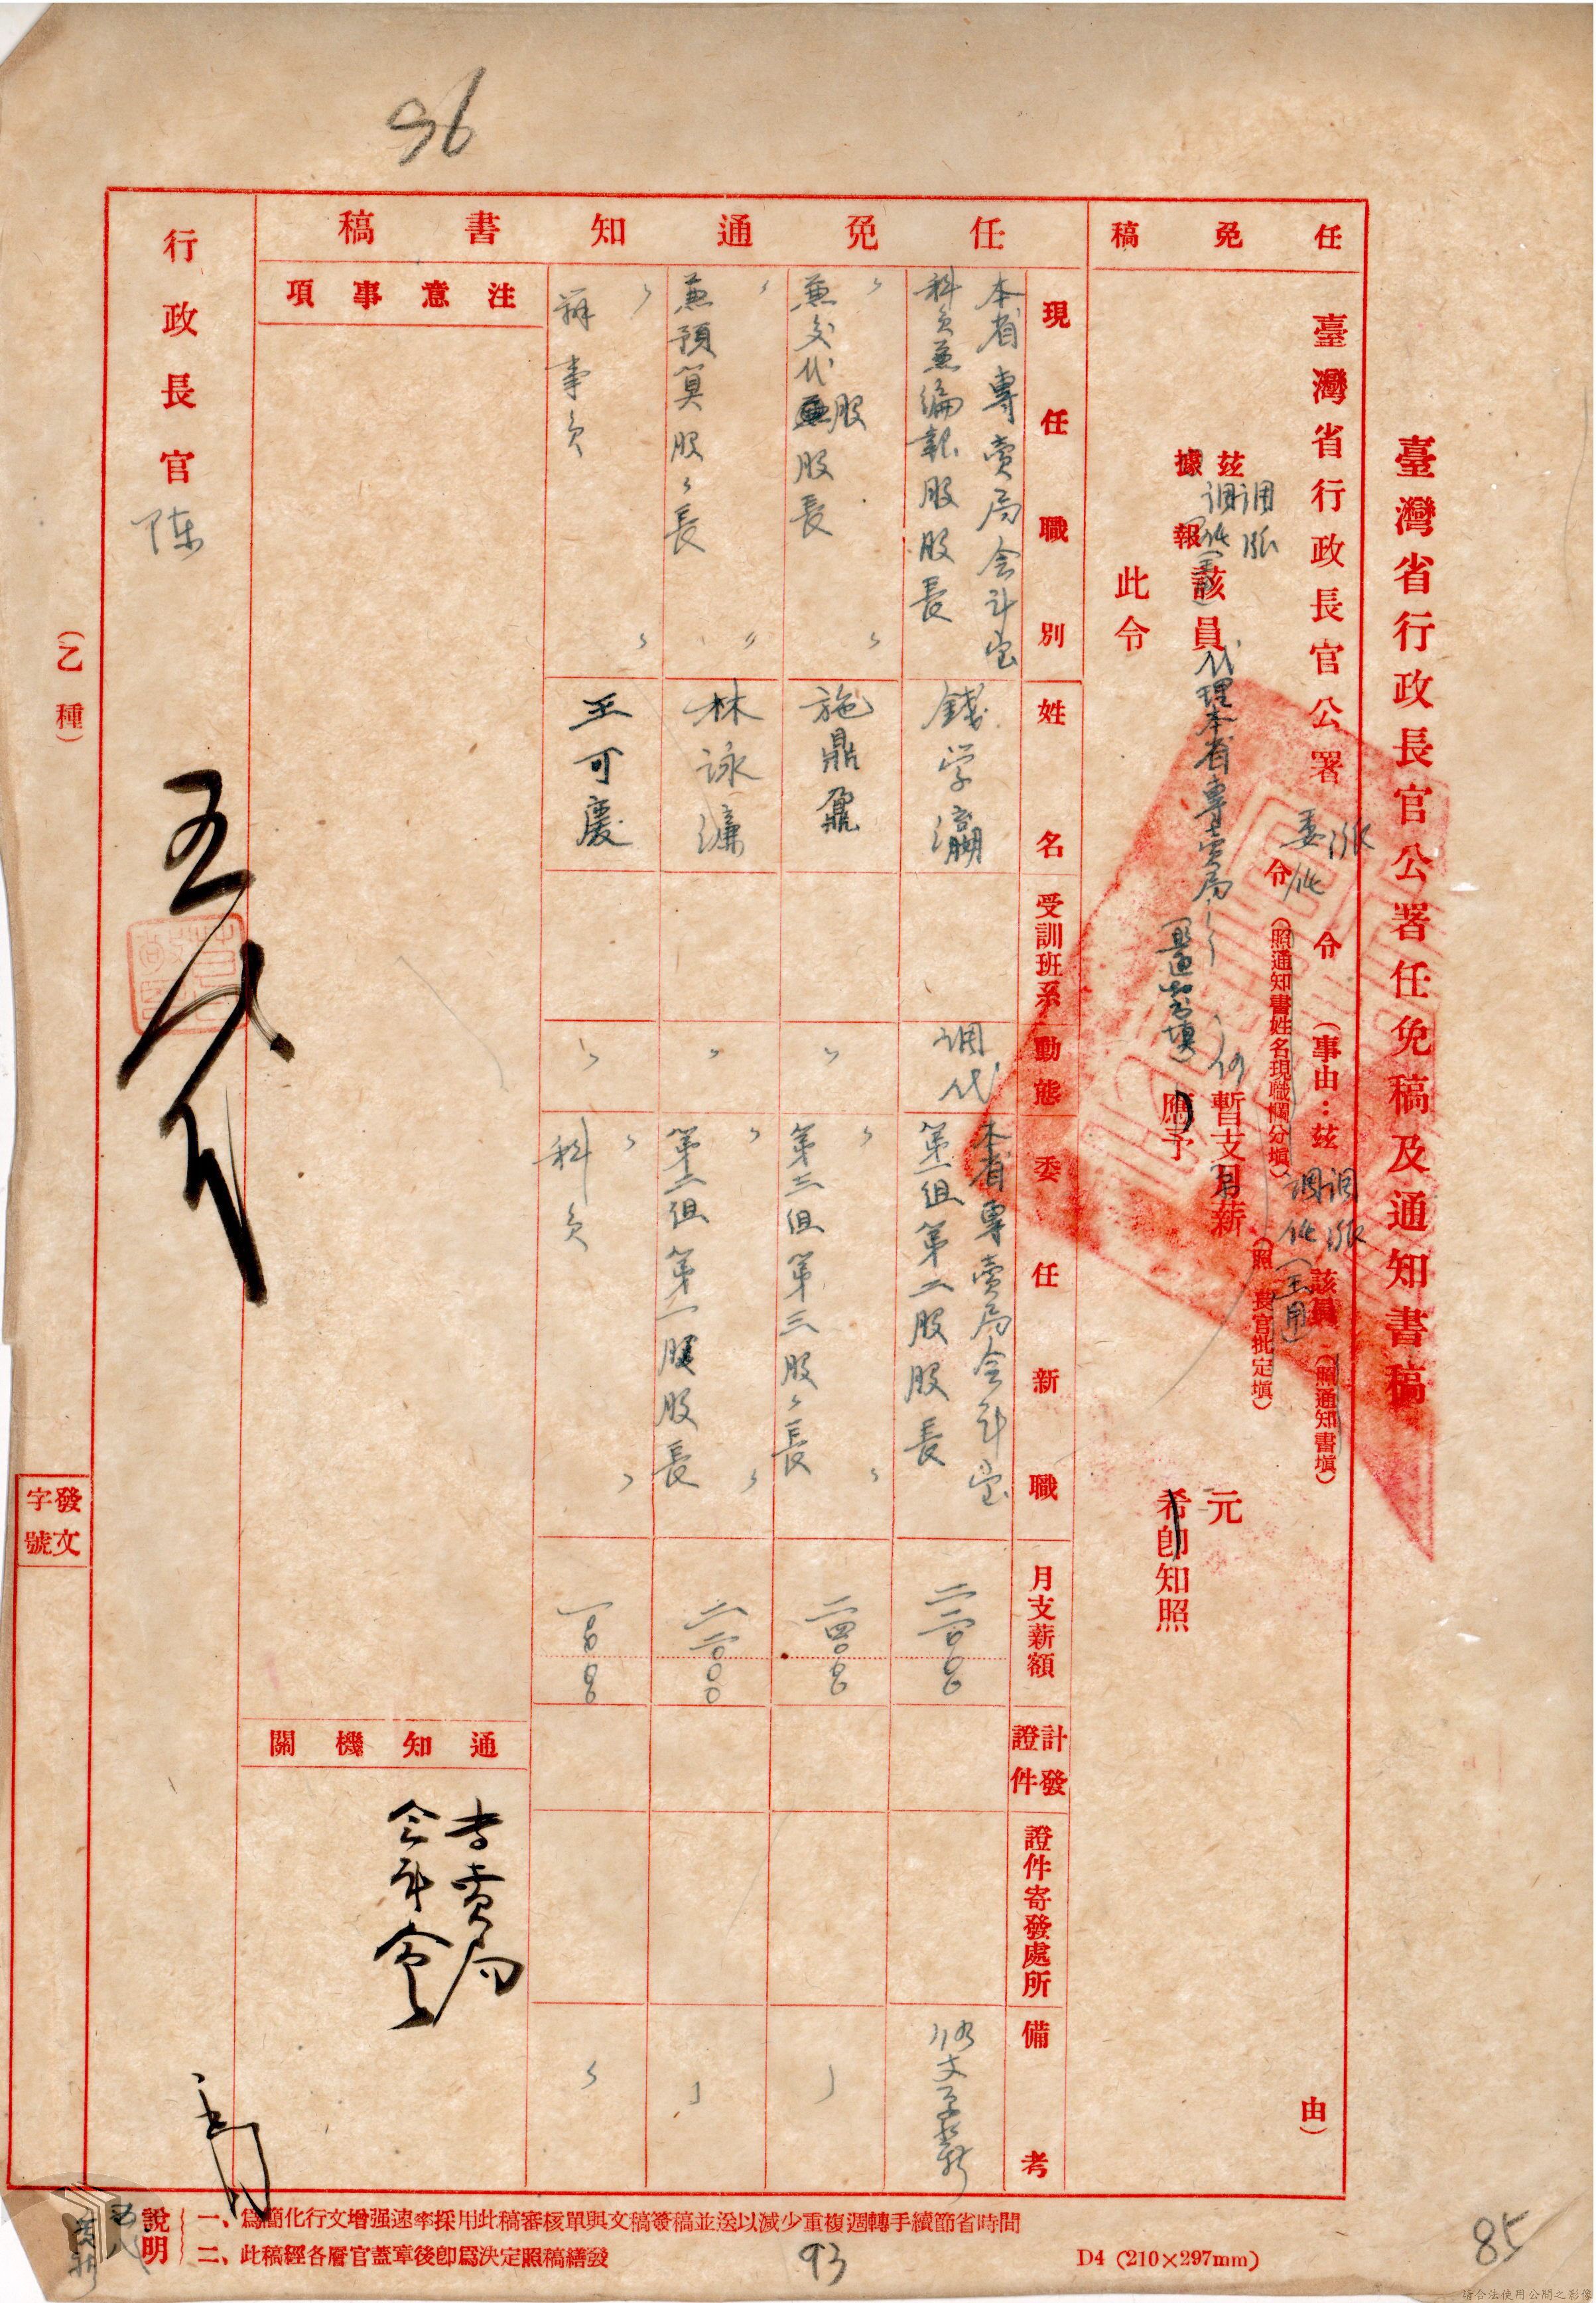 96
臺灣省行政長官公署任免稿及通知書稿
任免稿
臺灣省行政長官公署
委派
代
令
令
(照通知書姓名現職欄分塡)
(事由：茲
調派
調代
該員
(照通知書塡)
由)
茲
據報
調派
調代
該員
代理本省專賣局
(照通知書填)
暫支月薪
(照長官批定塡)
元
應予
希卽知照
此令
任免通知書稿
現任職別
姓名
受訓班系
動態
委任新職
月支薪額
計發證件
證件寄發處所
備考
本省專賣局会計室
科員兼編報股股長
錢学瀛
调代
本省專賣局会計室
第一组第二股股長
〃
兼交代股股長
〃
施鼎鼐
〃
〃
第三组第三股〻長
〃
〃
兼預算股〻長
〃
林詠濂
〃
〃
第二组第一股股長
〃
〃
辦事員
〃
王可慶
〃
〃
科員
〃
注意事項
通知機關
专卖局
会計室
行政長官
陈
(乙種)
發文
字號
說明
一、爲簡化行文增强速率採用此稿審核單與文稿簽稿並送以減少重複週轉手續節省時間
二、此稿經各層官蓋章後卽爲決定照稿繕發
93
D4 (210×297mm)
85
請合法使用公開之影像